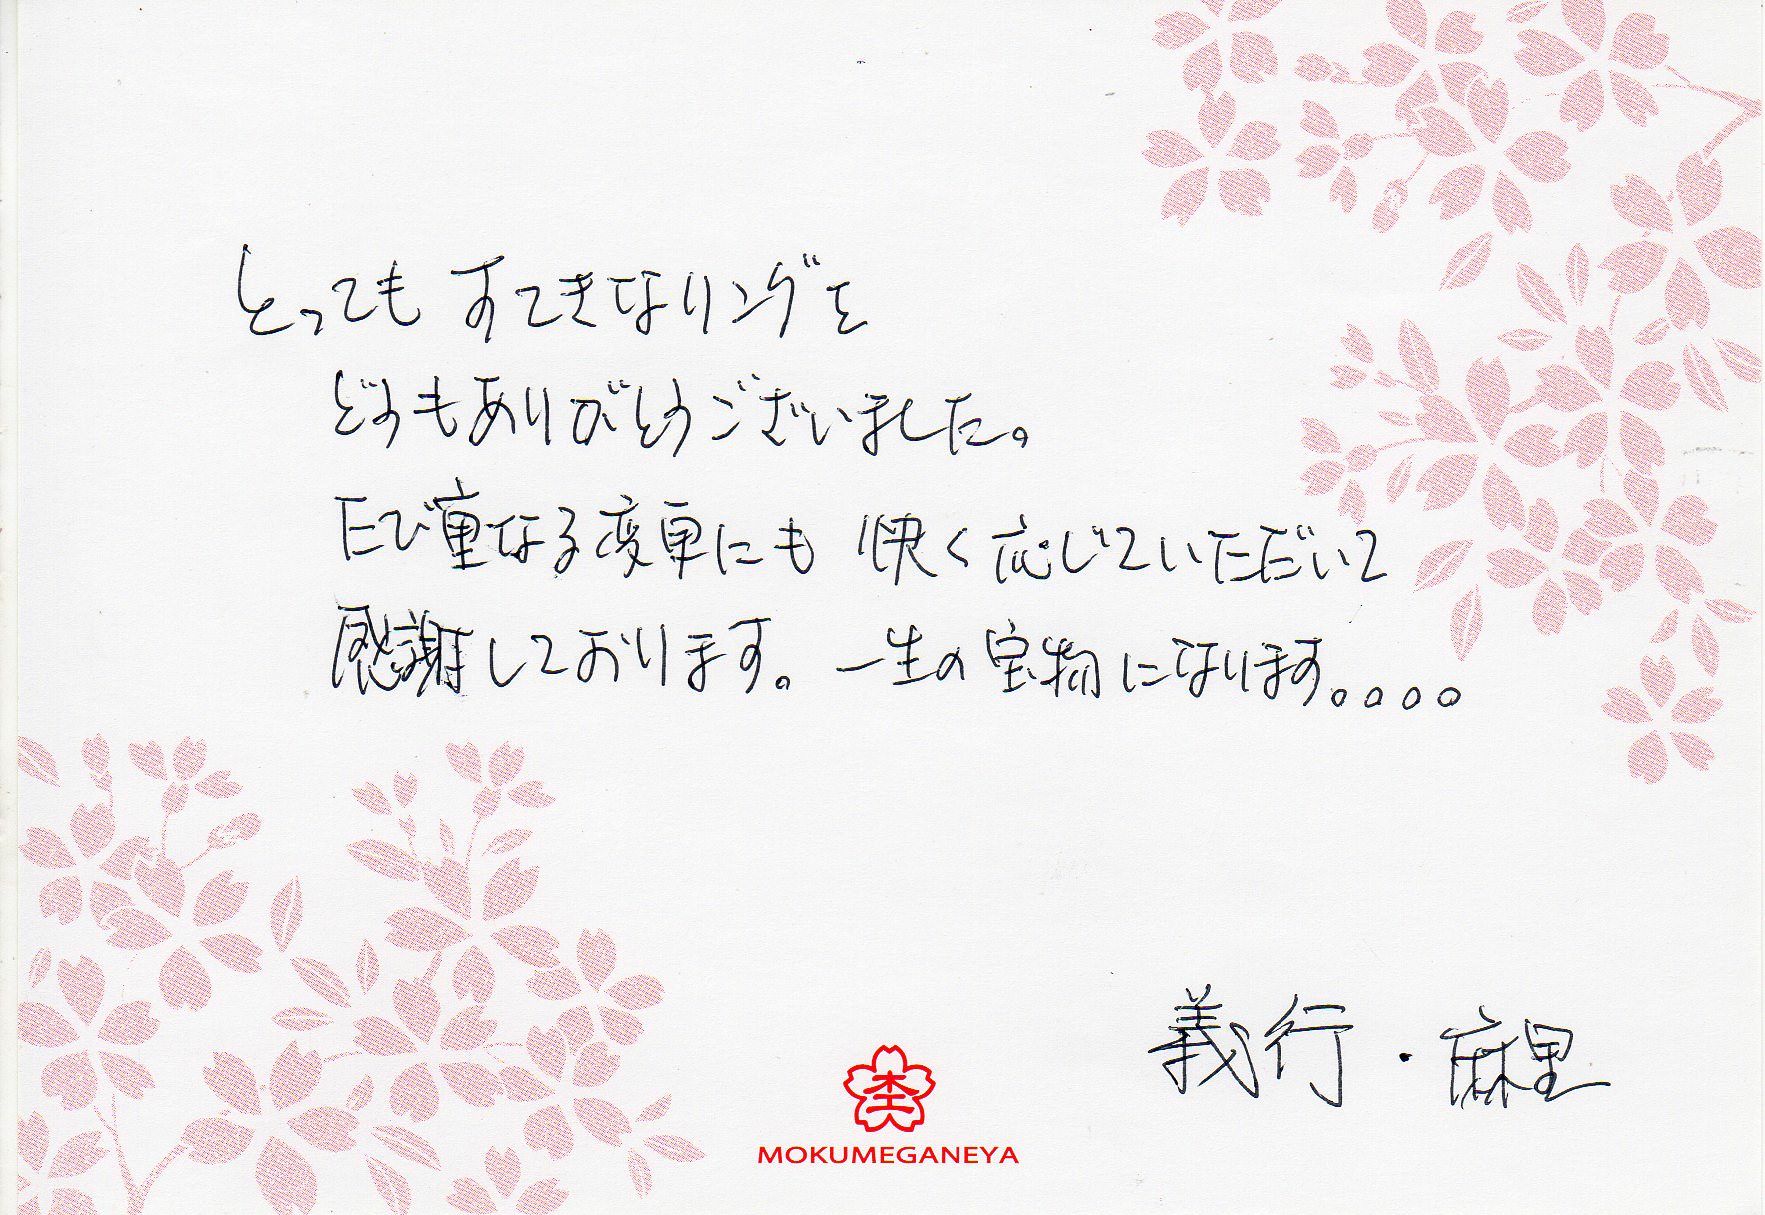 とっても すてきなリングを
どうもありがとうございました。
たび重なる変更にも 快く応じていただいて
感謝しております。一生の宝物になります。。。。
義行・麻里
MOKUMEGANEYA